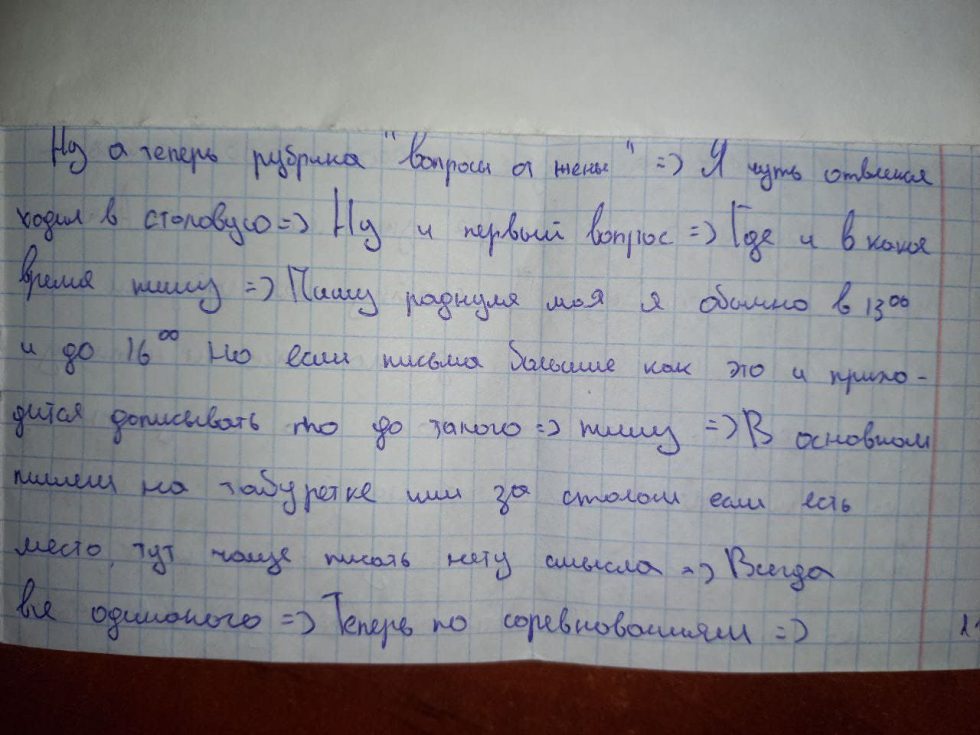 Ну а теперь рубрика "вопросы от жены" => Я чуть отвлекся
ходил в столовую => Ну и первый вопрос => Где и в какое
время пишу => Пишу роднуля моя я обычно в 13⁰⁰
и до 16⁰⁰ Но если письма большие как это и прихо-
дится дописывать то до такого => пишу => В основном
пишем на табуретке или за столом если есть
место, тут чаще писать нету смысла => Всегда
все одиноково => Теперь по соревнованиям =>